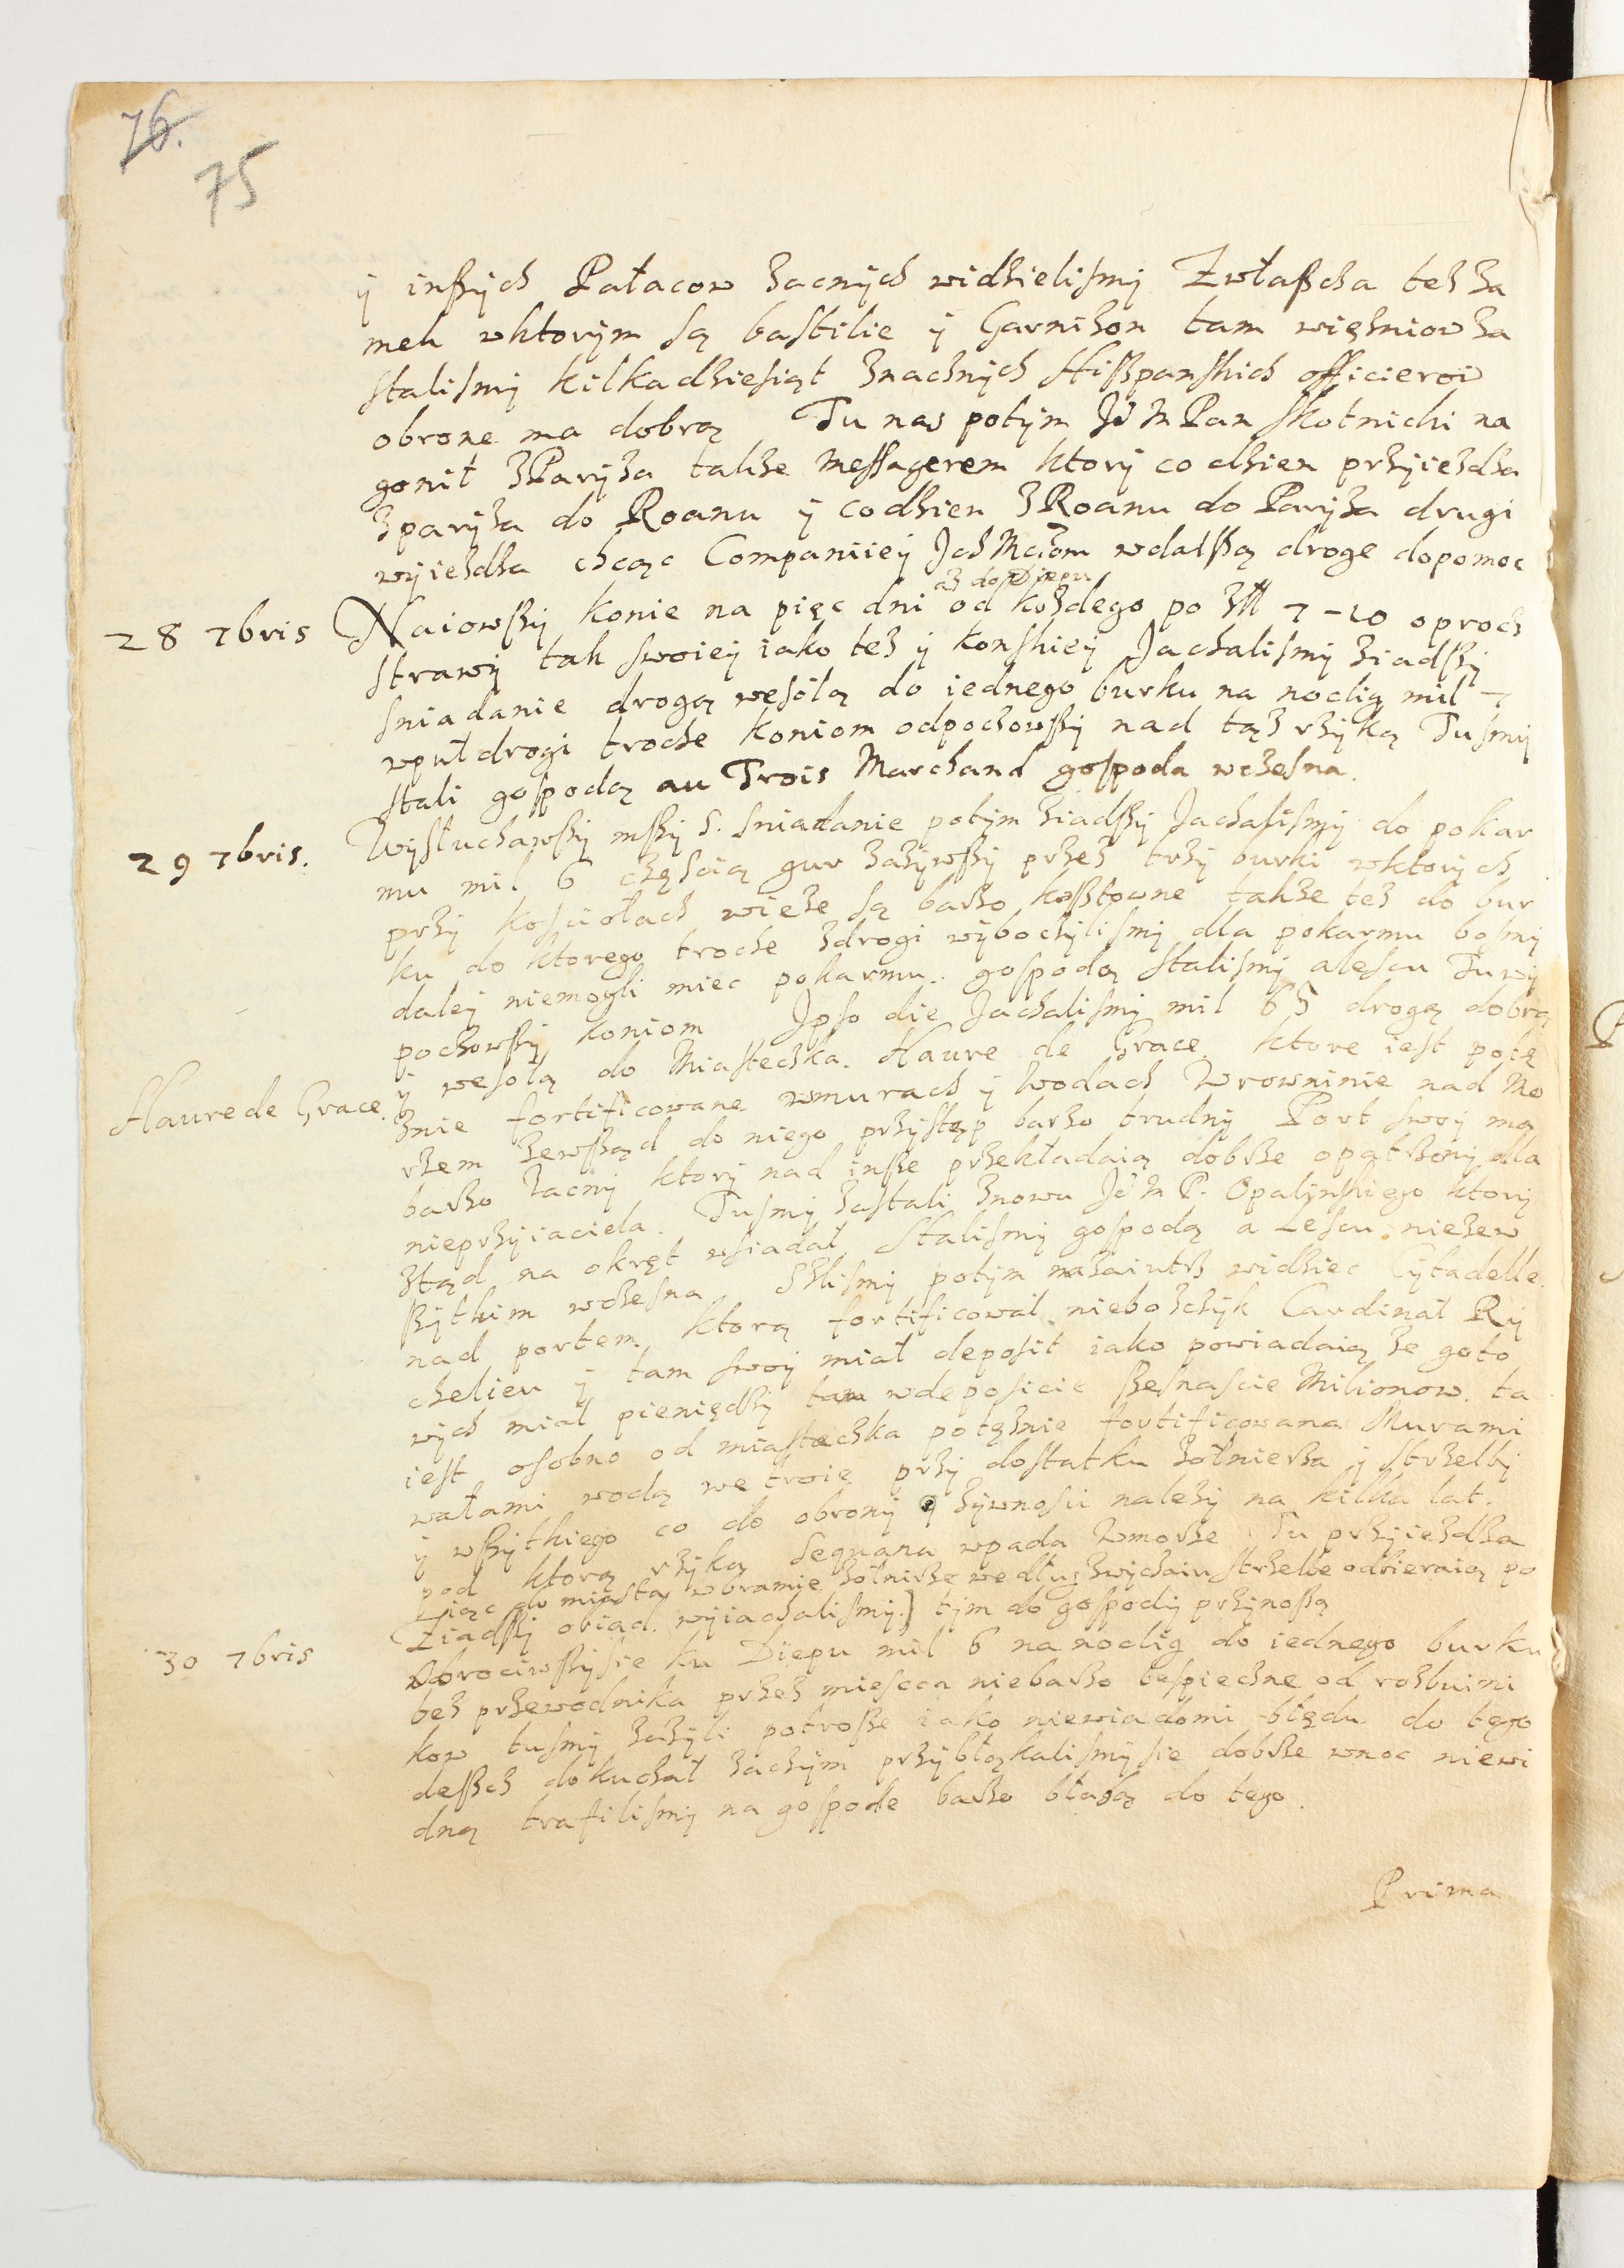 76.
75
y inszych Pałacow zacnych widzielismy Zwłaszcza tez za
mek wktorym są bastilie y Garnizon tam więzniow za
stalismy kilkadziesiąt znacznych Hiszpanskich officierow
obrone ma dobrą Tu nas potym JeM Pan Skotnicki na
gonił zParyża takze messagerem ktory co dzien przyiezdza
zparyża do Roanu y codzien zRoanu do Paryża drugi
wyiezdza chcąc Companiiey wdalszą droge dopomoc
az do Diepu
28 7bris Naiowszy konie na pięc dni od kozdego po 7-10 oprocz
strawy tak swoiey iako tez y konskiey Jachalismy ziadszy
sniadanie drogą wesołą do iednego burku na noclig mil 7
wpuł drogi troche koniom odpochowszy nad tąz rzyką Tusmy
stali gospodą au Trois Marchand gospoda wczesna.
29 7bris. Wysłuchawszy mszy S. sniadanie potym ziadszy Jachalismy do pokar
mu mil 6 częscią gur zazywszy przez trzy burki wktorych
przy kosciołach wieze są barzo kosztowne takze tez do bur
ku do ktorego troche zdrogi wyboczylismy dla pokarmu bosmy
daley niemogli miec pokarmu. gospodą stalismy alescu Tu wy
pochowszy koniom Ipso die Jachalismy mil 6 5 drogą dobrą
y wesołą do Miasteczka. Haure de Grace ktore iest potę
Haure de Grace. znie fortificowane wmurach y wodach Wrowninie nad Mo
rzem zewsząd do niego przystęp barzo trudny Port swoy ma
barzo zacny ktory nad insze przekładaią dobrze opatrzony dla
nieprzyiaciela. Tusmy zastali znowu JeM P. Opalinskiego ktory
ztąd na okręt wsiadał Stalismy gospodą a Lescu niezew
szytkim wczesna Szlismy potym nazaiutrz widziec Cytadelle
nad portem ktorą fortificował nieboszczyk Cardinał Ry
chelieu y tam swoy miał deposit iako powiadaią ze goto
wych miał pieniędzy tam wdeposicie szesnascie Milionow. ta
iest osobno od miasteczka potęznie fortificowana Murami
wałami wodą we troie przy dostatku zołnierza y strzelby
y wszytkiego co do obrony y zywnosci nalezy na kilka lat.
pod ktorą rzyka Sequana wpada Wmorze Tu przyiezdza
iąc do miasta wbramie zołnirze według zwyczaiu strzelbe odbieraią po
Ziadszy obiad. wyiachalismy.] tym do gospody przynoszą
30 7bris Obrociwszysie ku Diepu mil 6 na noclig do iednego burku
bez przewodnika przez miesca niebarzo bespieczne od rozbuini
kow tusmy zazyli potrosze iako niewiadomi błędu do tego
deszcz dokuczał zaczym przybłąkalismysie dobrze wnoc niewi
dną trafilismy na gospode barzo błahą do tego.
Prima